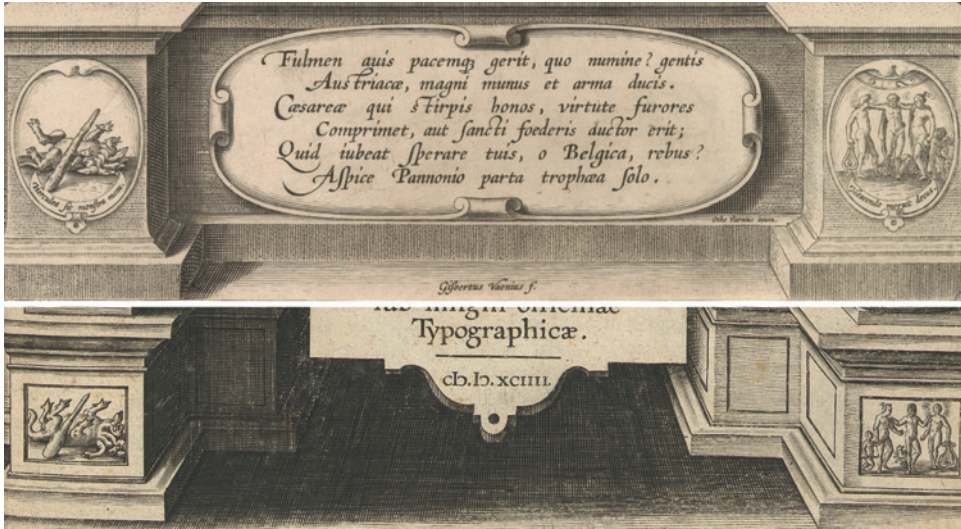 Fulmen auis pacemq́ꝫ gerit, quo numine? gentis
Austriacæ, magni munus et arma ducis.
Cæsareæ qui stirpis honos, virtute furores
Comprimet, aut sancti foederis auctor erit;
Quid iubeat sperare tuis, o Belgica, rebus?
Aspice Pannonio parta trophæa solo.
Herculea sic monstra manu.
Otho Vaenius inuen.
Gisbertus Vaenius f.
sub insigni officinae
Typographicæ.
cIɔ.Iɔ.XCIIII.